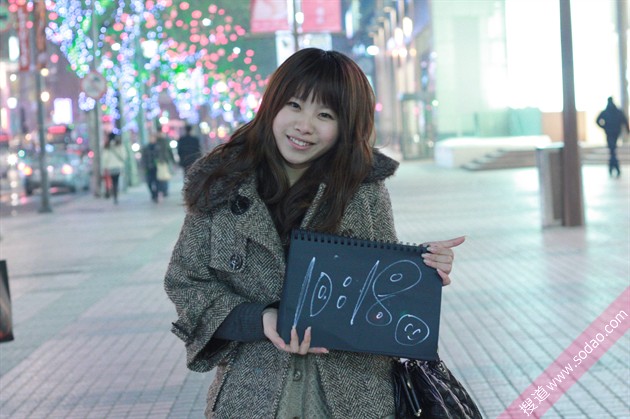 10:18
搜道 www.sodao.com